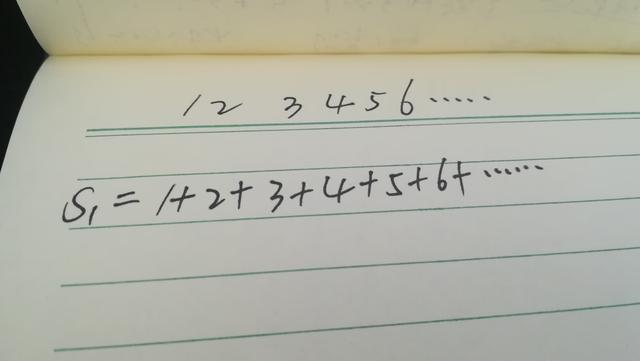 1 2 3 4 5 6 ......
S₁ = 1+2+3+4+5+6+ ......